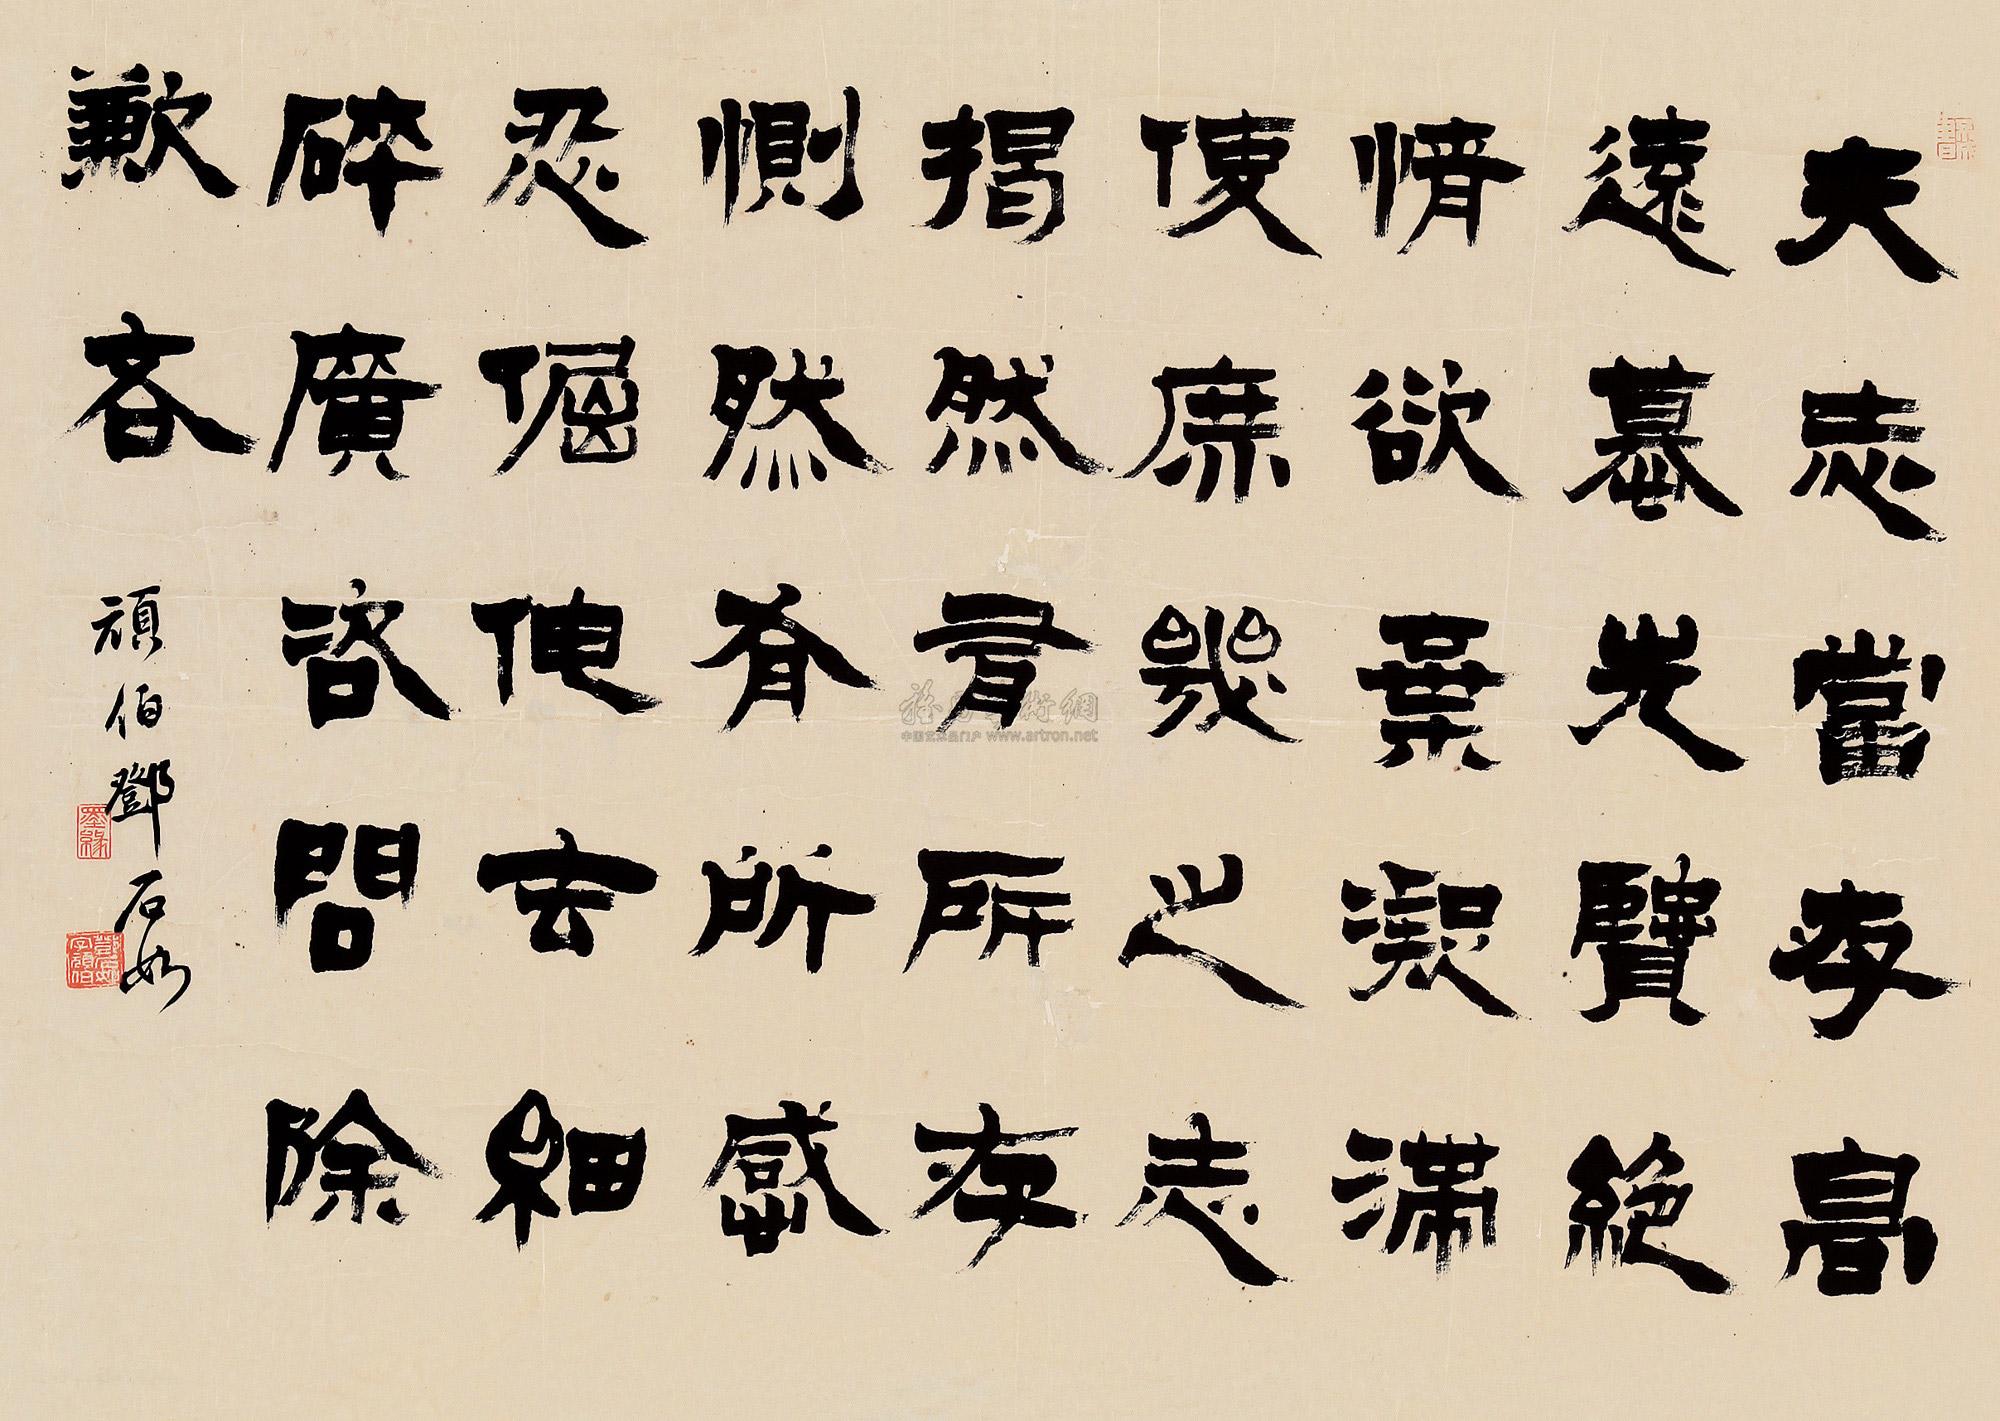 夫志當存高
遠慕先賢絕
情欲棄凝滯
使庶幾之志
揭然有所存
惻然有所感
忍倔伸去細
碎廣咨問除
歉吝
頑伯鄧石如
墨緣
鄧石如字頑伯
雅昌藝術網
中国艺术品门户 www.artron.net